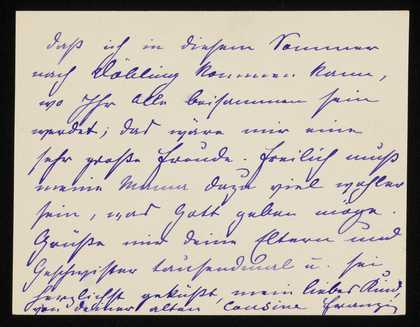 daß ich in diesem Sommer
nach Döbling kommen kann,
wo Ihr Alle beisammen sein
werdet; das wäre mir eine
sehr große Freude. Freilich muß
meine Mama dazu viel wohler
sein, was Gott geben möge.
Grüße mir deine Eltern und
Geschwister tausendmal u. sei
herzlichst geküßt, mein liebes Kind,
von deiner alten Cousine Franzi